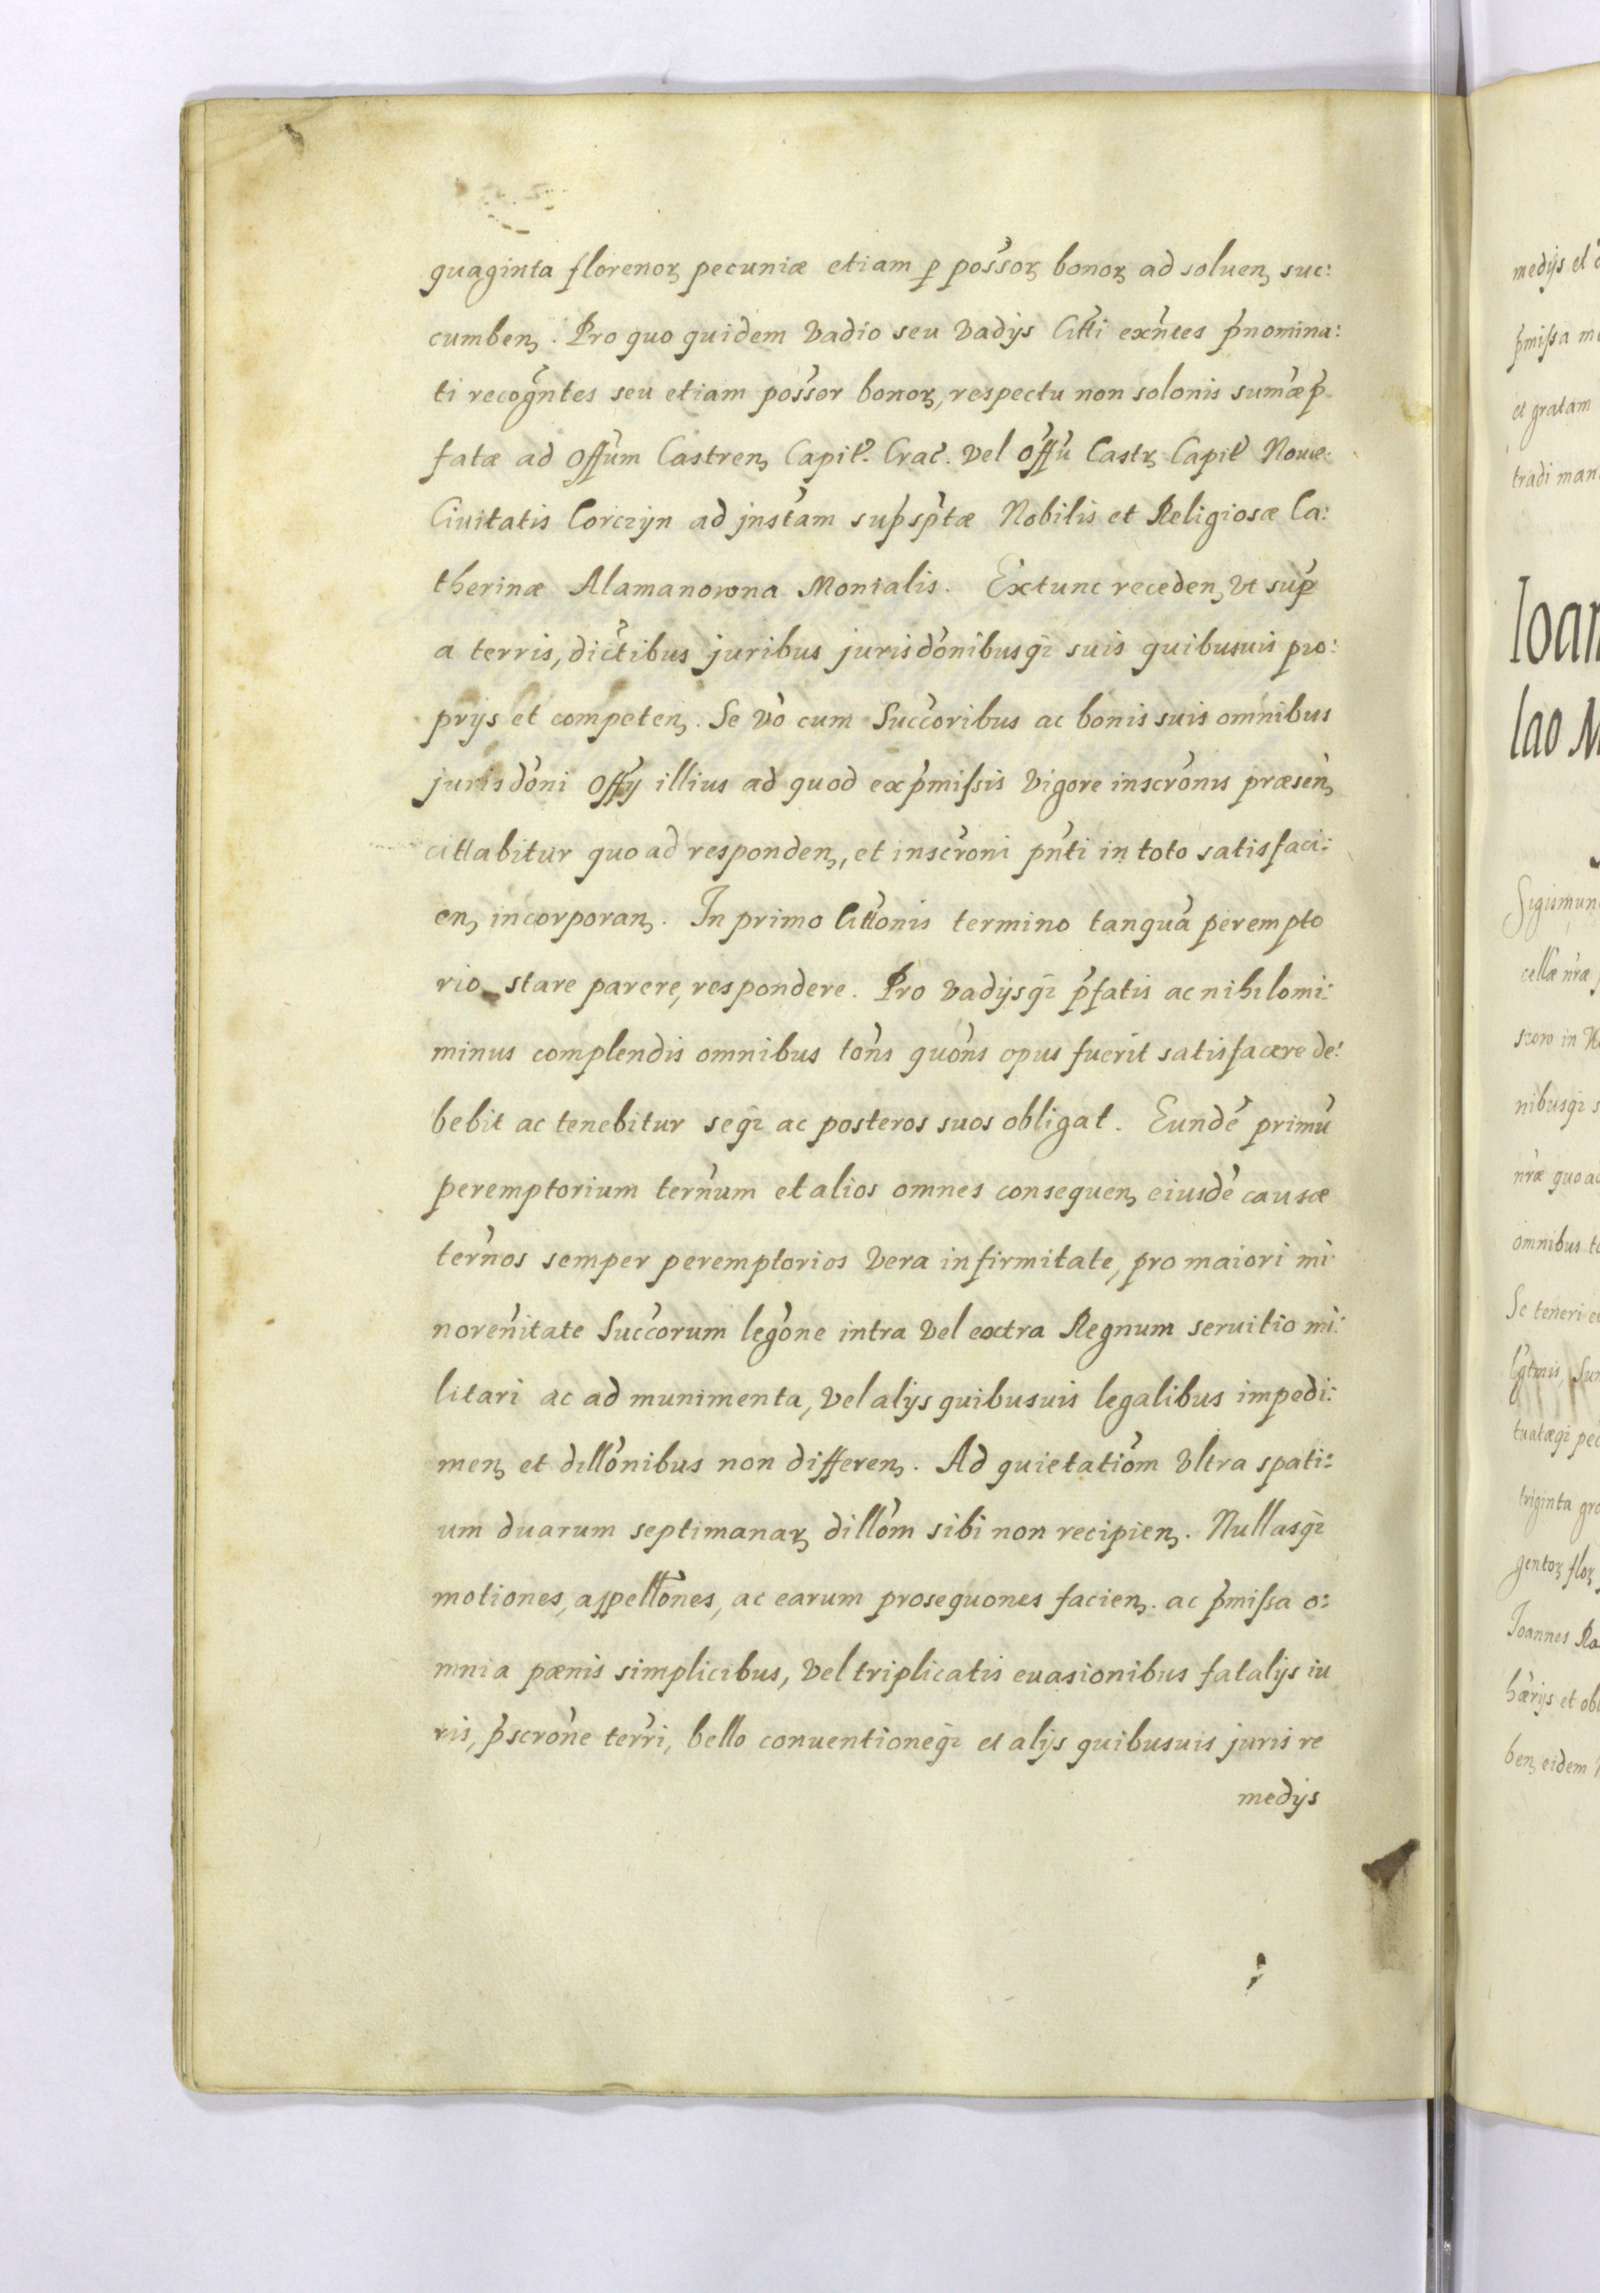 quaginta florenoꝝ pecuniæ etiam ꝑ posśoꝝ bonoꝝ ad soluenꝫ suc:
cumbenꝫ. Pro quo quidem vadio seu vadijs Citti exn̄tes p̄nomina:
ti recogn̄tes seu etiam posśor bonoꝝ, respectu non solonis sum̄æ p̄
fatæ ad Offūm Castrenꝫ Capit̄. Crac̄. vel Offū Castꝝ Capit̄ Nouæ
Ciuitatis Corczyn ad jnst̄am sup̄sp̄tæ Nobilis et Religiosæ Ca:
therinæ Alamanowna Monialis. Extunc recedenꝫ vt sup̄
a terris, dict̄ibus juribus jurisdōnibusqꝫ suis quibusuis pro:
prijs et competenꝫ. Se vō cum Succ̄oribus ac bonis suis omnibus
jurisdōni Offy illius ad quod ex p̄missis vigore inscrōnis præsen̄ꝫ
cittabitur quo ad respondenꝫ, et inscrōni pn̄ti in toto satisfaci:
enꝫ incorporanꝫ. In primo Cittōnis termino tanquā perempto
rio stare parere, respondere. Pro vadijsqꝫ p̄fatis ac nihilomi:
minus complendis omnibus tōns quōns opus fuerit satisfacere de:
bebit ac tenebitur seqꝫ ac posteros suos obligat. Eundē primū
peremptorium tern̄um et alios omnes consequenꝫ eiusdē causæ
tern̄os semper peremptorios vera infirmitate, pro maiori mi
noren̄itate Succ̄orum legōne intra vel extra Regnum seruitio mi:
litari ac ad munimenta, vel alijs quibusuis legalibus impedi:
menꝫ et dillōnibus non differenꝫ. Ad quietatiōm vltra spati:
um duarum septimanaꝝ dillōm sibi non recipienꝫ. Nullasqꝫ
motiones, appellōnes, ac earum prosequones facienꝫ. ac p̄missa o:
mnia pænis simplicibus, vel triplicatis euasionibus fatalijs iu
ris, p̄scrōne terr̄i, bello conuentioneqꝫ et alijs quibusuis juris re
medijs
medijs et
p̄missa
et gratam
tradi
Ioan
lao M
Sigismun
cellæ nr̄æ
nibusqꝫ s
nr̄æ quo ad
omnibus
Se teneri
triginta
gentoꝝ floꝝ
Joannes
et
benꝫ eidem